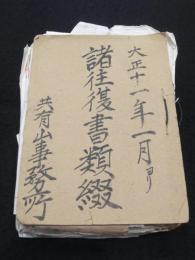 大正十一年一月ヨリ
諸往復書類綴
共有山事務所